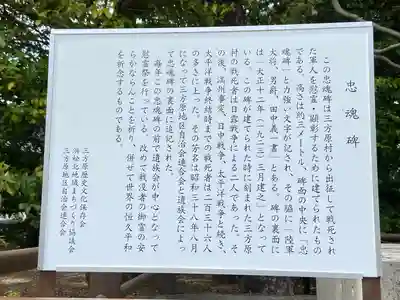 忠魂碑
この忠魂碑は三方原村から出征して戦死され
た軍人を慰霊・顕彰するために建てられたもの
である。高さは約三メートル、碑面の中央に「忠
魂碑」と力強い文字が記され、その脇に「陸軍
大将、男爵、田中義一書」とある。碑の裏面に
は「大正十二年（一九二三）三月建之」となって
いる。この碑が建てられた時に刻まれた三方原
村の戦死者は日露戦争による二人であった。そ
の後、満州事変、日中戦争、太平洋戦争と続き、
太平洋戦争終結時までの戦死者は二百三十六人
の多きに上った。その芳名は昭和三十八年八月
になって三方原地区自治会連合会と遺族会によっ
て忠魂碑の裏面に追記された。
毎年この忠魂碑の前で遺族会が中心となって
慰霊祭を行っている。改めて戦没者の御霊の安
らかならんことを祈り、併せて世界の恒久平和
を祈念するものである。
三方原歴史文化保存会
浜松北地域まちづくり協議会
三方原地区自治会連合会